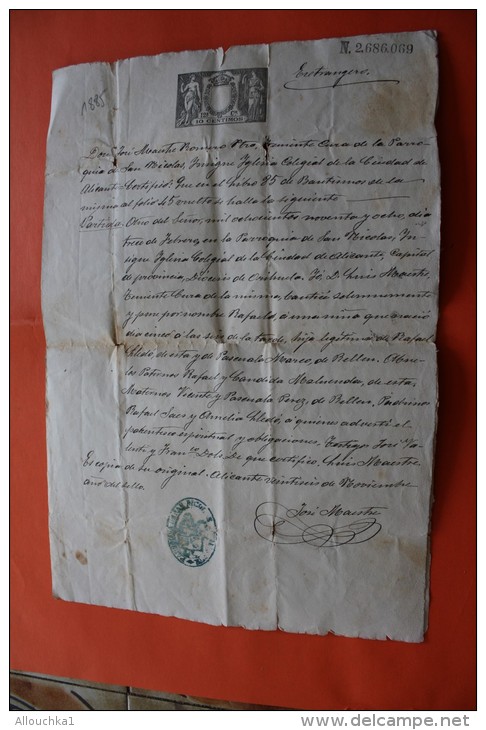 N. 2.686.069
Extrangero.
1895
10 CENTIMOS
Don José Maestre Romero Pbro, Teniente Cura de la Parro-
quia de San Nicolas, Insigne Iglesia Colegial de la Ciudad de
Alicante. Certifico: Que en el Libro 85 de Bautismos de la
misma al folio 45 vuelto se halla la siguiente
Partida. Año del Señor, mil ochocientos noventa y ocho, dia
trece de Febrero, en la Parroquia de San Nicolas, In-
signe Iglesia Colegial de la Ciudad de Alicante, Capital
de provincia, Diócesis de Orihuela. Yo D. Luis Maestre,
Teniente Cura de la misma, bauticé solemnemente
y puse por nombre Rafaela, á una niña que nació
dia cinco á las seis de la tarde, hija legitima de Rafael
Lledó, de esta y de Pascuala Marco, de Rellen. Abue-
los Paternos Rafael y Candida Maluenda, de esta,
Maternos Vicente y Pascuala Perez, de Rellen. Padrinos
Rafael Saez y Amelia Lledó, á quienes advertí el
parentesco espiritual y obligaciones. Testigos José
y Fran.co De que certifico. Luis Maestre
Es copia de su original. Alicante veintiseis de Noviembre
año del sello.
José Maestre
Allouchka1
http://www.delcampe.net